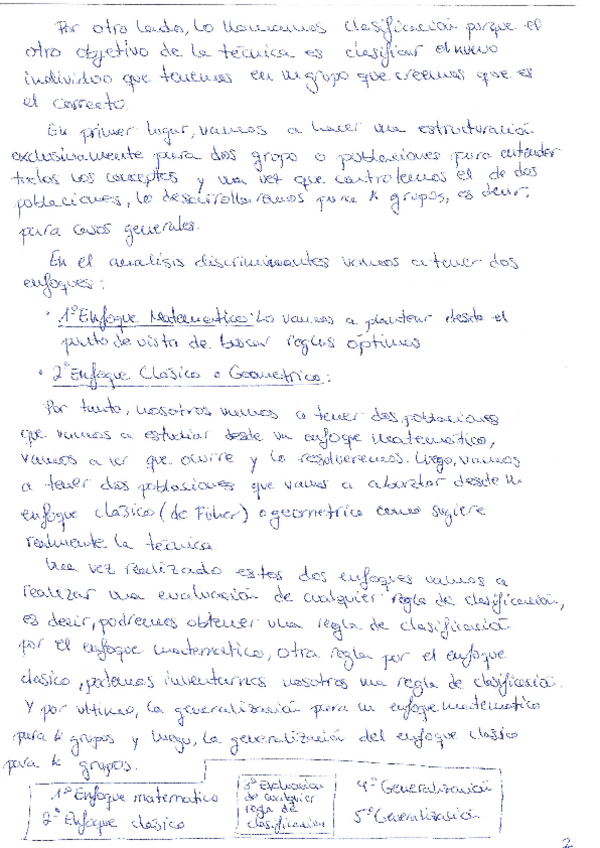 Por otro lado, lo llamamos clasificación porque el
otro objetivo de la técnica es clasificar el nuevo
individuo que tenemos en un grupo que creemos que es
el correcto.
En primer lugar, vamos a hacer una estructuración
exclusivamente para dos grupo o poblaciones para entender
todos los conceptos y una vez que controlemos el de dos
poblaciones, lo desarrollaremos para k grupos, es decir,
para casos generales.
En el analisis discriminantes vamos a tener dos
enfoques:
· 1º Enfoque Matematico: Lo vamos a plantear desde el
punto de vista de buscar reglas óptimas
· 2º Enfoque Clásico o Geometrico:
Por tanto, nosotros vamos a tener dos poblaciones
que vamos a estudiar desde un enfoque matemático,
vamos a ver que ocurre y lo resolveremos. Luego, vamos
a tener dos poblaciones que vamos a abordar desde un
enfoque clásico (de Fisher) o geometrico como sugiere
realmente la técnica.
Una vez realizado estos dos enfoques vamos a
realizar una evaluación de cualquier regla de clasificación,
es decir, podremos obtener una regla de clasificación
por el enfoque matematico, otra regla por el enfoque
clasico, podemos inventarnos nosotros una regla de clasificación.
Y por ultimo, la generalización para un enfoque matematico
para k grupos y luego, la generalización del enfoque clasico
para k grupos.
1º Enfoque matematico
2º Enfoque clasico
3º Evaluación
de cualquier
regla de
clasificación
4º Generalización
5º Generalización
2